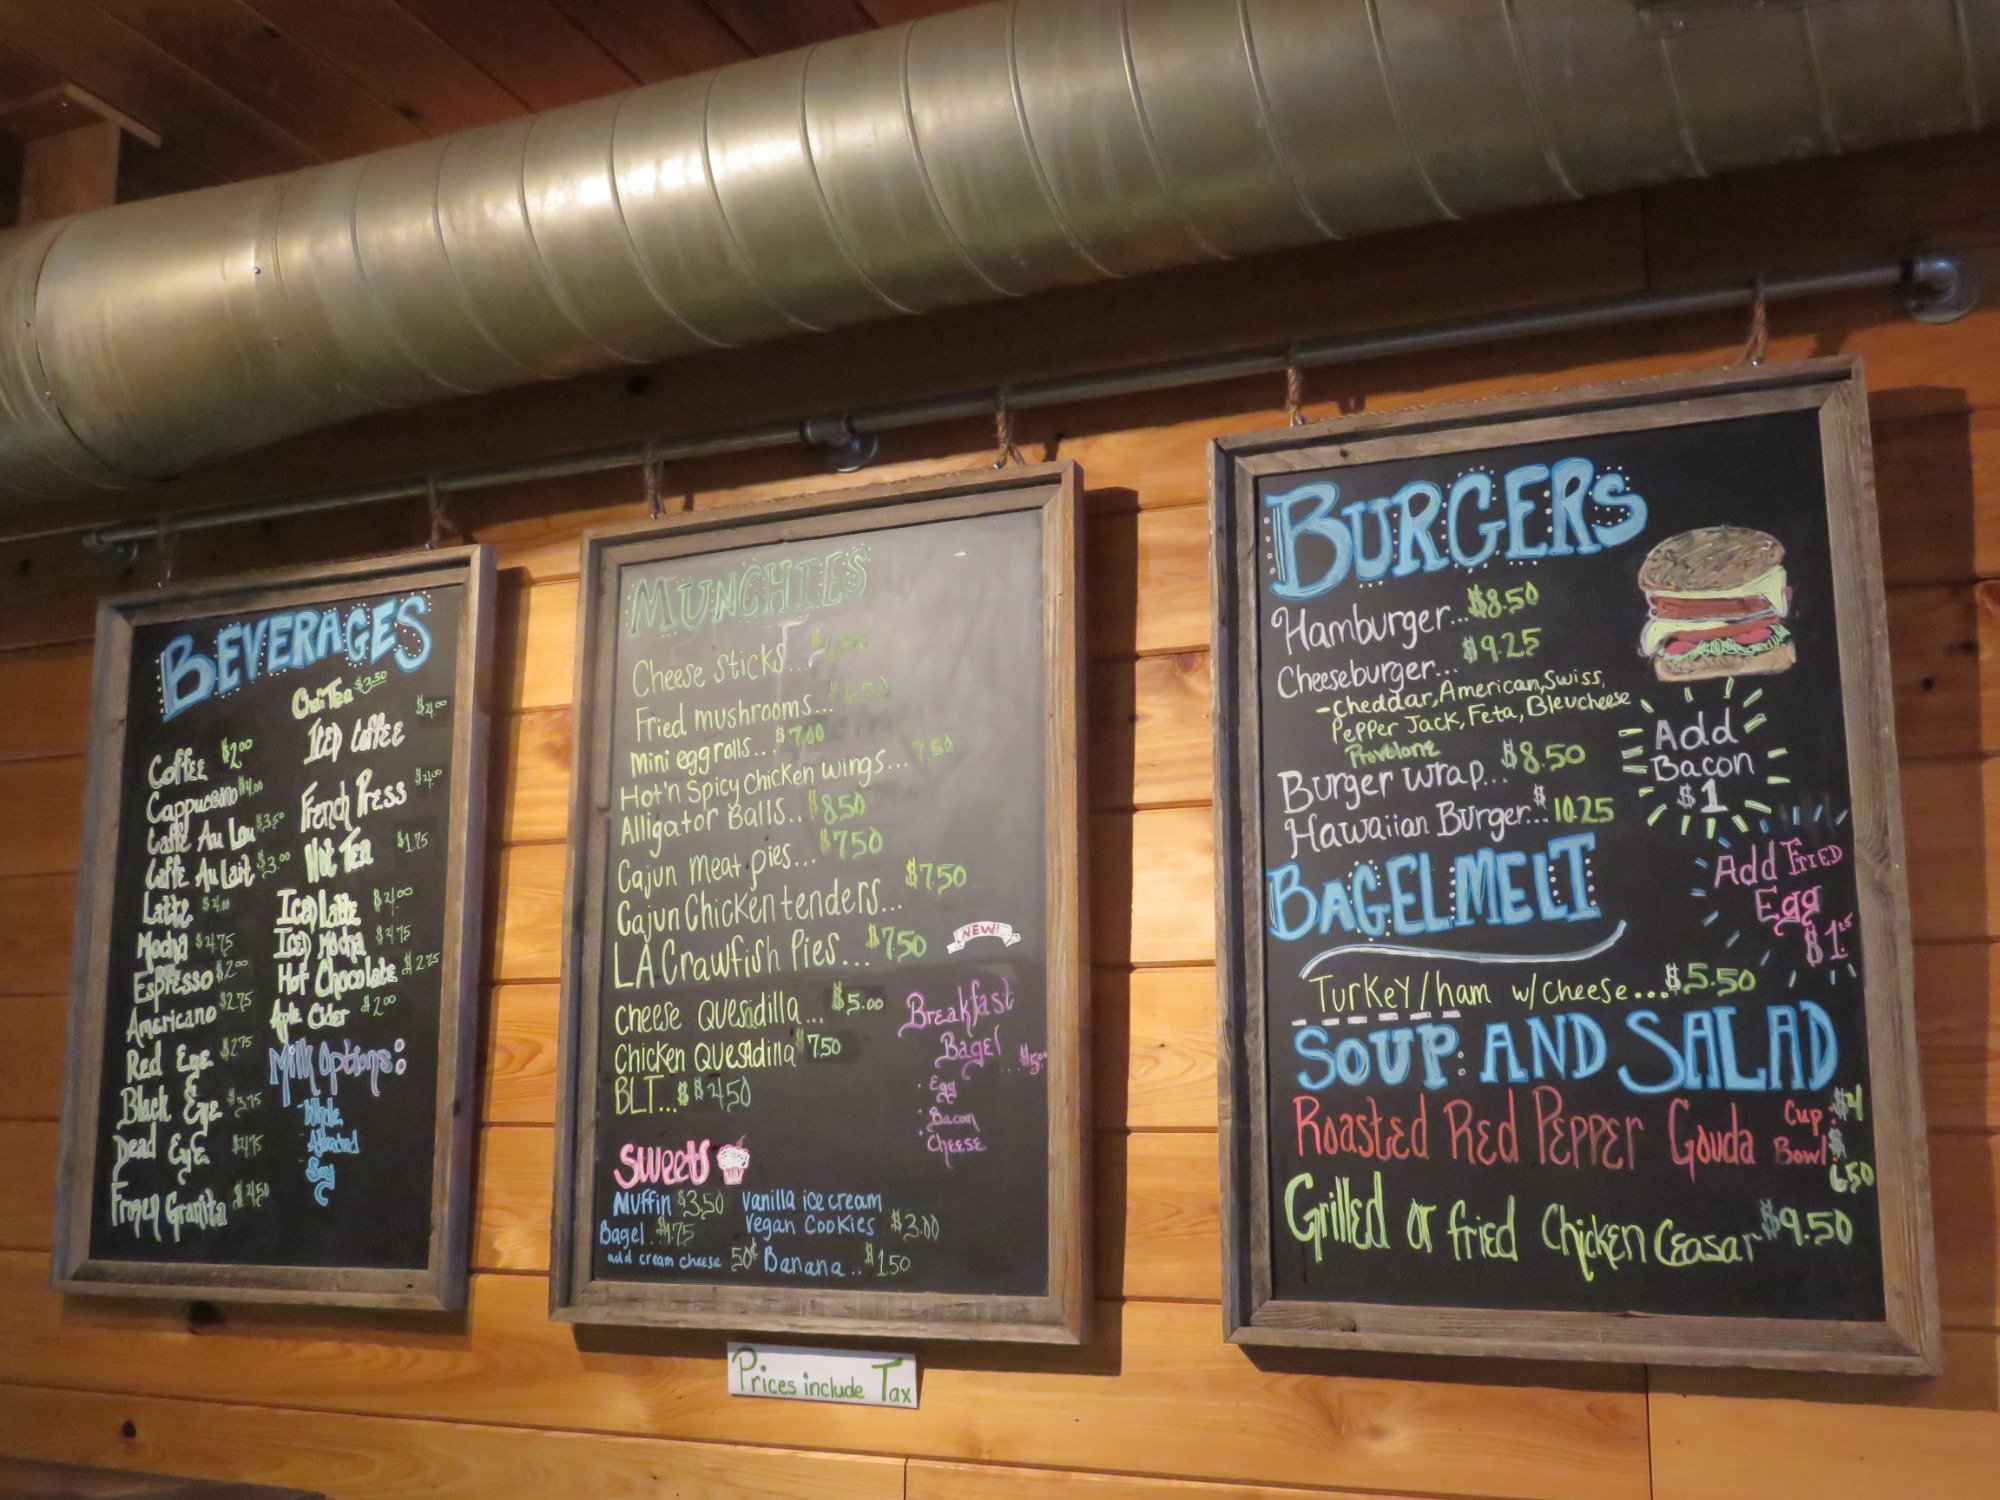 BEVERAGES
Chai Tea $3.50
Iced Coffee $4.00
Coffee $2.00
Cappuccino $4.00
French Press $4.00
Caffe Au Lou $3.50
Caffe Au Lait $3.00
Hot Tea $1.75
Latte $4.00
Iced Latte $4.00
Mocha $4.75
Iced Mocha $4.75
Espresso $2.00
Hot Chocolate $2.75
Americano $2.75
Apple Cider $2.00
Red Eye $2.75
Milk Options:
Black Eye $3.75
Whole
Almond
Soy
Dead Eye $4.75
Frozen Granita $4.50
MUNCHIES
Cheese sticks... $6.50
Fried mushrooms... $6.50
Mini eggrolls... $7.00
Hot'n Spicy Chicken wings... 7.50
Alligator Balls.. $8.50
Cajun meat pies... $7.50
Cajun Chicken tenders... $7.50
LA Crawfish Pies... $7.50
NEW!
Cheese Quesadilla... $5.00
Chicken Quesadilla $7.50
BLT...$ $4.50
Breakfast
Bagel ... $5.00
· Egg
· Bacon
· Cheese
Sweets
Muffin $3.50
Bagel. $1.75
add cream cheese 50¢
Vanilla ice cream
Vegan Cookies $3.00
Banana.. $1.50
Prices include Tax
BURGERS
Hamburger...$8.50
Cheeseburger... $9.25
-Cheddar, American, Swiss,
Pepper Jack, Feta, Bleucheese
Provolone
Burger wrap...$8.50
Hawaiian Burger...$10.25
Add
Bacon
$1
Add Fried
Egg
$1.25
BAGELMELT
Turkey/ham w/cheese...$5.50
SOUP: AND SALAD
Roasted Red Pepper Gouda
Cup: $4
Bowl: $6.50
Grilled or fried Chicken Ceasar $9.50